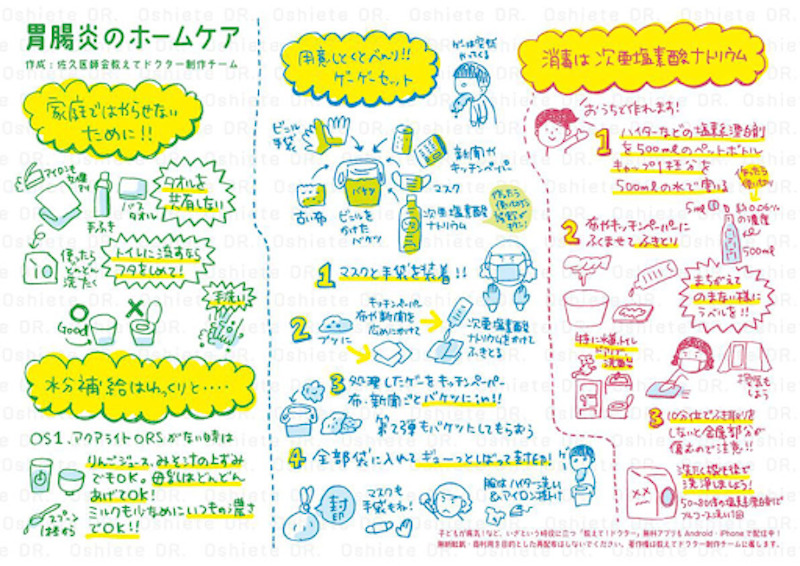 胃腸炎のホームケア
作成：佐久医師会教えてドクター制作チーム
家庭ではやらせない
ために!!
タオルを
共有しない
手ふき
バス
タオル
使ったら
どんどん
洗たく
トイレに流すなら
フタをしめて!
手洗い
Good
水分補給はゆっくりと・・・・
OS1、アクアライトORSがない時は
りんごジュース、みそ汁の上ずみ
でもOK。母乳はどんどん
あげてOK!
ミルクもうすめずに
スプーン
1杯から
いつもの濃さ
でOK!!
用意しとくとべんり!!
ゲーゲーセット
ゲーは突然
やってくる
ビニール
手袋
新聞や
キッチンペーパー
マスク
バケツ
古い布
ビニールを
かけた
バケツ
次亜塩素酸
ナトリウム
1 マスクと手袋を装着!!
2
キッチンペーパー
布や新聞を
広めにかけて
次亜塩素酸
ナトリウムをかけて
ふきとる
3 処理したゲーをキッチンペーパー
布・新聞ごとバケツにinり!!
第2弾もバケツにしてもらおう
4 全部袋に入れてギューっとしばって封印!
封
マスクも
手袋もね!
服はハイター洗い
&アイロン掛け
消毒は次亜塩素酸ナトリウム
おうちで作れます!
1 ハイターなどの塩素系漂白剤
を500mlのペットボトル
キャップ1杯分を
500mlの水で割る
作ったら
使い切り
5ml
約0.05%
の濃度
500ml
2 布やキッチンペーパーに
ふくませてふきとり
まちがえて
のまない様に
ラベルを!!
特に水道、トイレ
洗面台
換気も
しよう
3 10分位で水拭き
しないと金属部分が
傷むので注意!!
洗たく機も後で
洗浄しましょう
子どもが病気!など、いざという時役に立つ「教えて!ドクター」無料アプリもAndroid・iPhoneで配信中!
無断転載・商利用を目的とした再配布はしないでください。著作権は教えてドクター制作チームに属します。